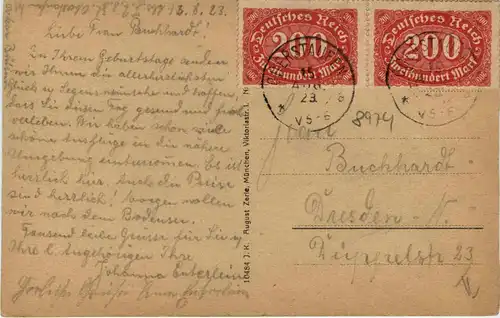 13.8.23.
Liebe Frau Buchhardt!
Zu Ihrem Geburtstage senden
wir Ihnen die allerherzlichsten
Glück u. Segenswünsche und hoffen,
dass Sie diesen Tag gesund und froh
verleben. Wir haben schon viele
schöne Ausflüge in die nähere
Umgebung unternommen. Es ist
herrlich hier. Auch die Reise
sind herrlich! Morgen wollen
wir nach dem Bodensee.
Tausend liebe Grüsse für Sie u.
Ihre l. Angehörigen Ihre
Johanna Enterlein
Deutsches Reich
200
Zweihundert Mark
Deutsches Reich
200
Zweihundert Mark
23.
V 5-6
V 5-6
8974
Frau
Buchhardt
Dresden-N.
23
10484 J. K. August Zerle, München, Viktoriastr. 1.